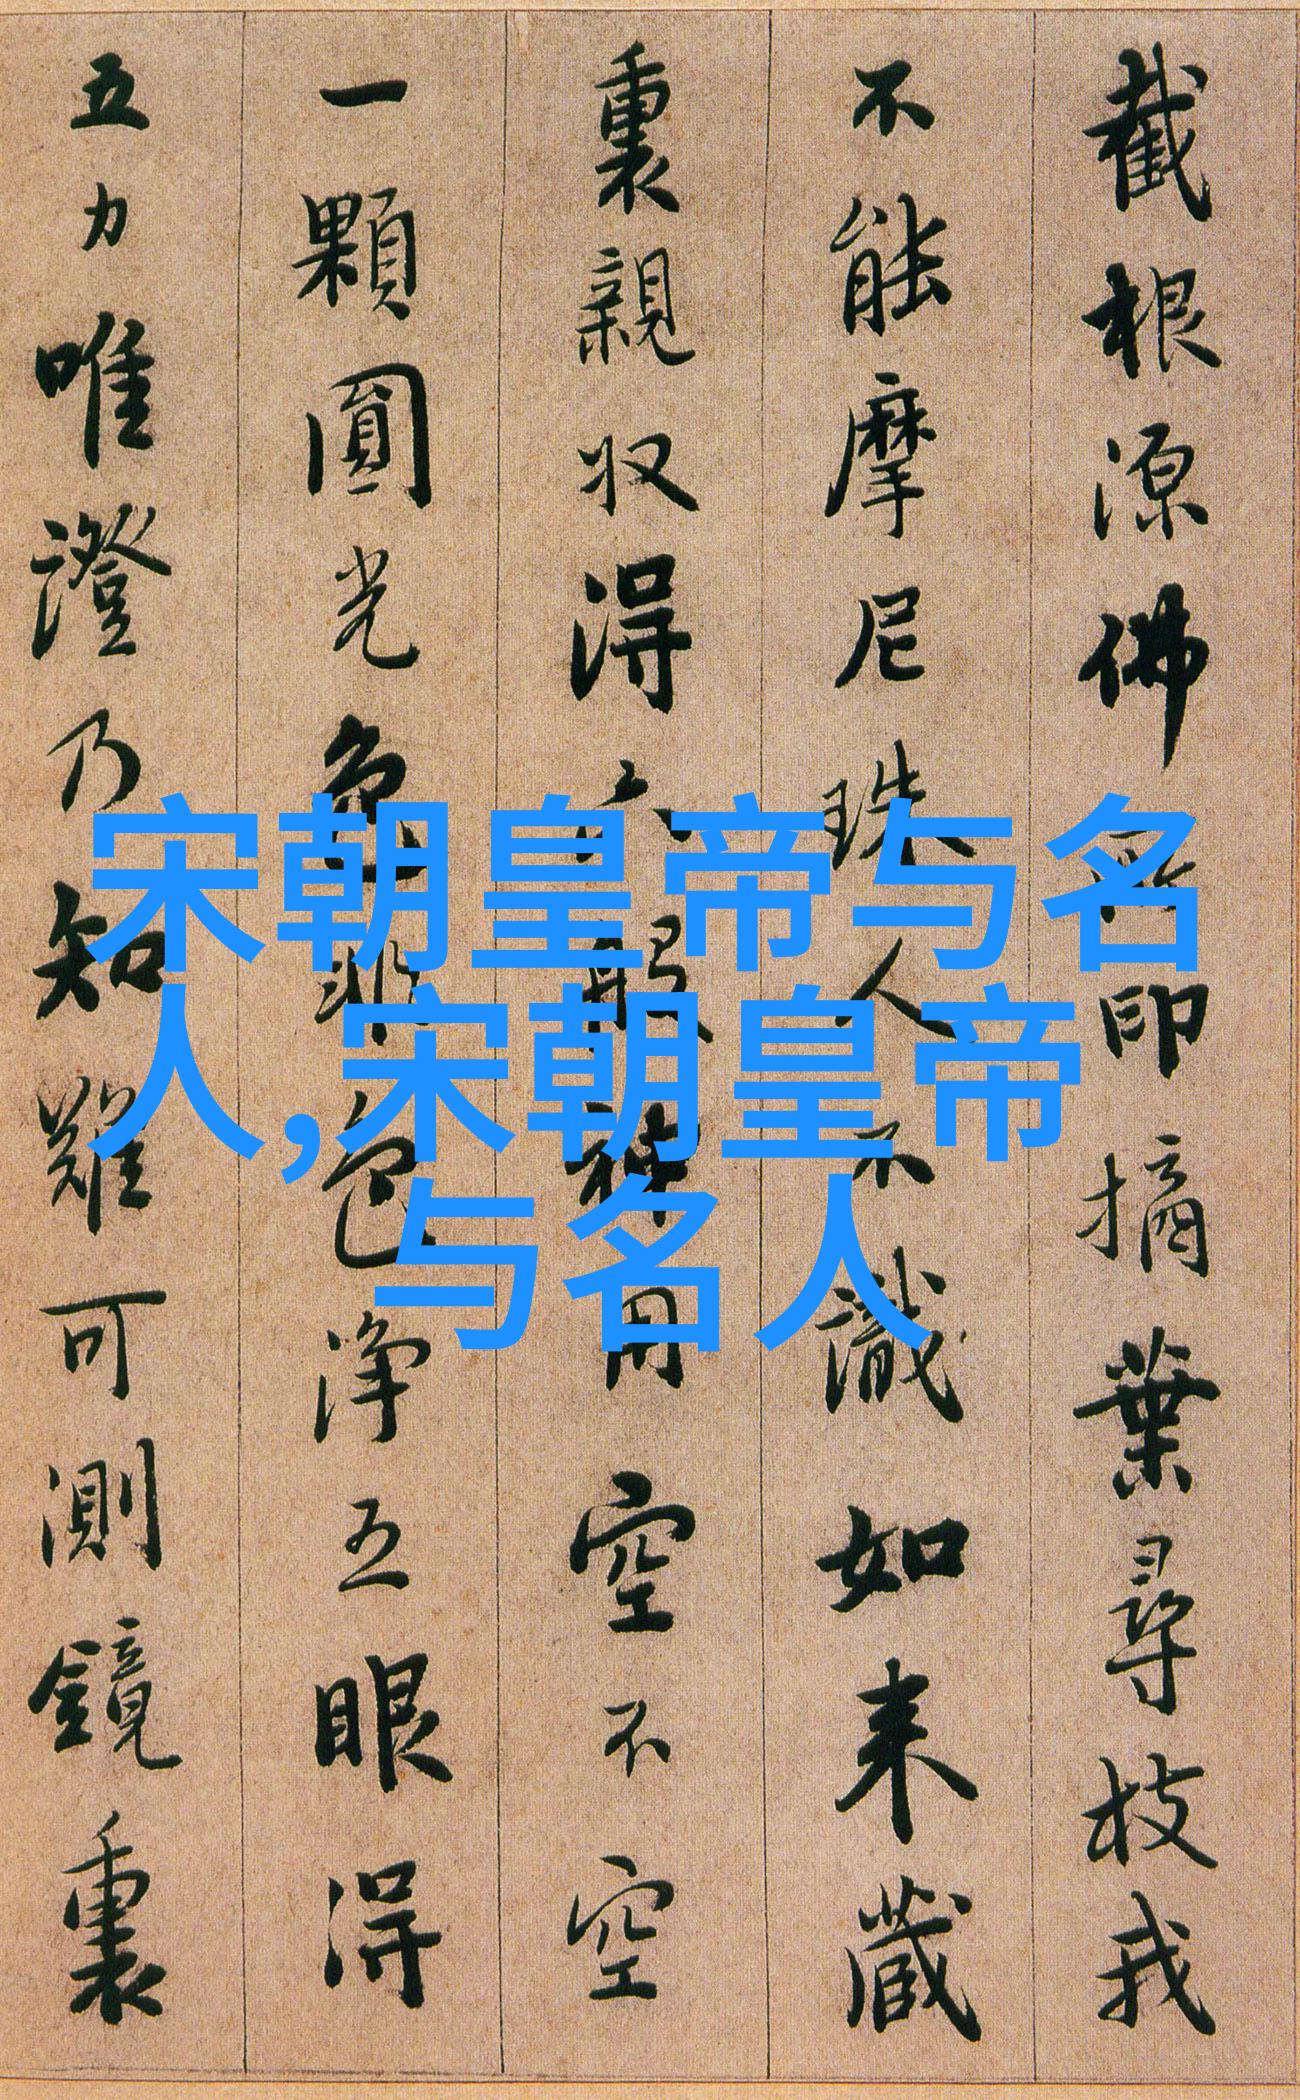 截根源佛所印摘葉尋枝我
不能摩尼珠人不識如来藏
裏親収得六般神用空不空
一顆圓光色非色淨五眼得
五力唯證乃知難可測鏡裏
宋朝皇帝与名
人,宋朝皇帝
与名人